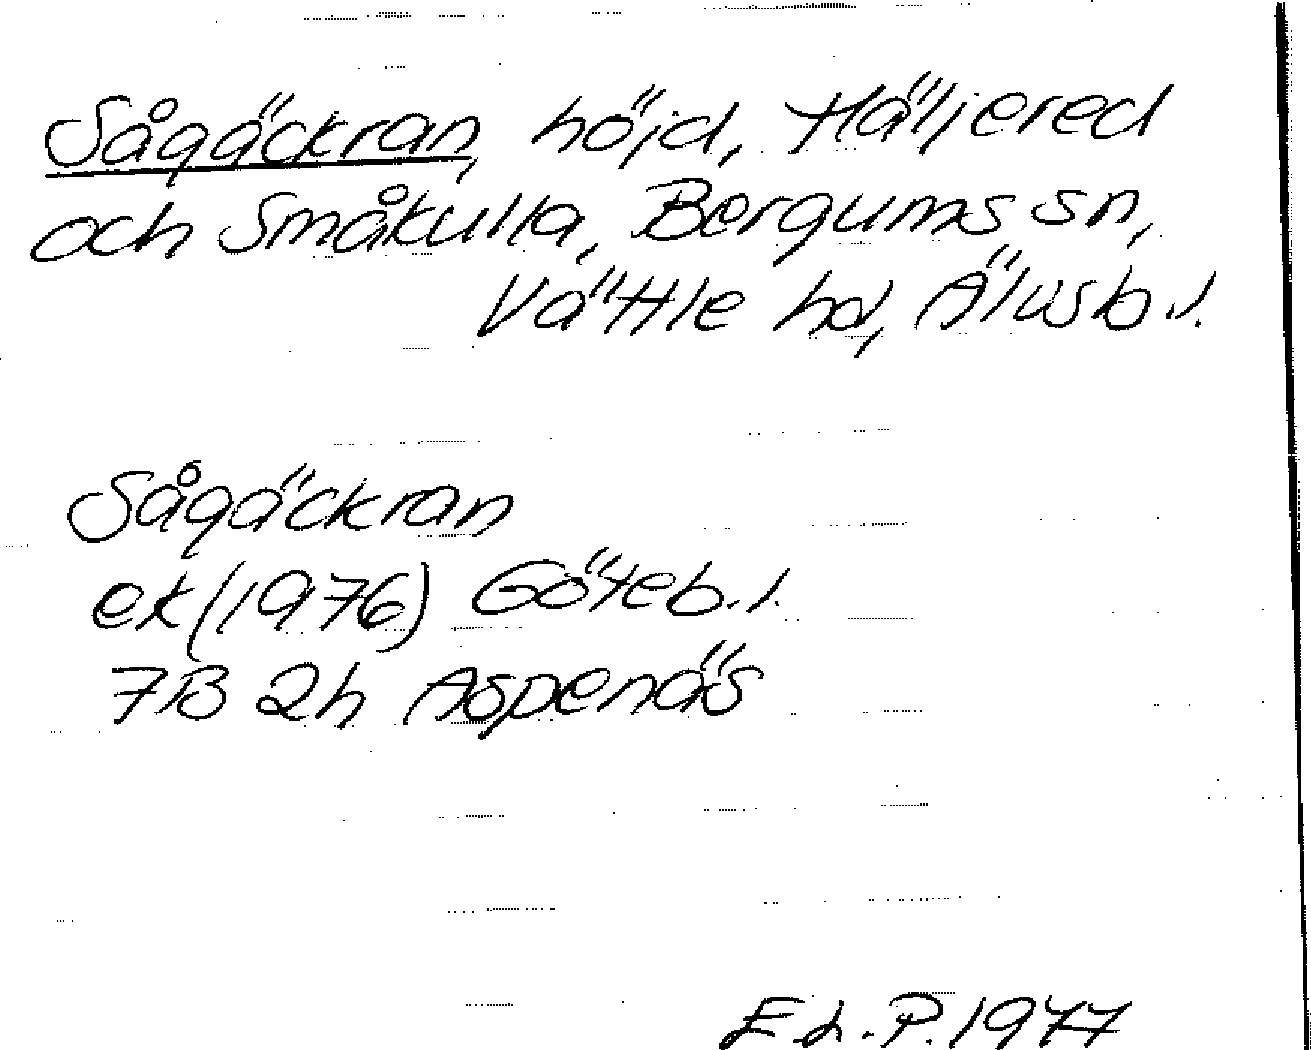 Sågäckran, höjd, Häljered
och Småkulla, Bergums sn,
Vättle hd, Älvsb.l.
Sågäckran
ek (1976) Göteb.l.
7B 2h Aspenäs
E.L.P. 1977